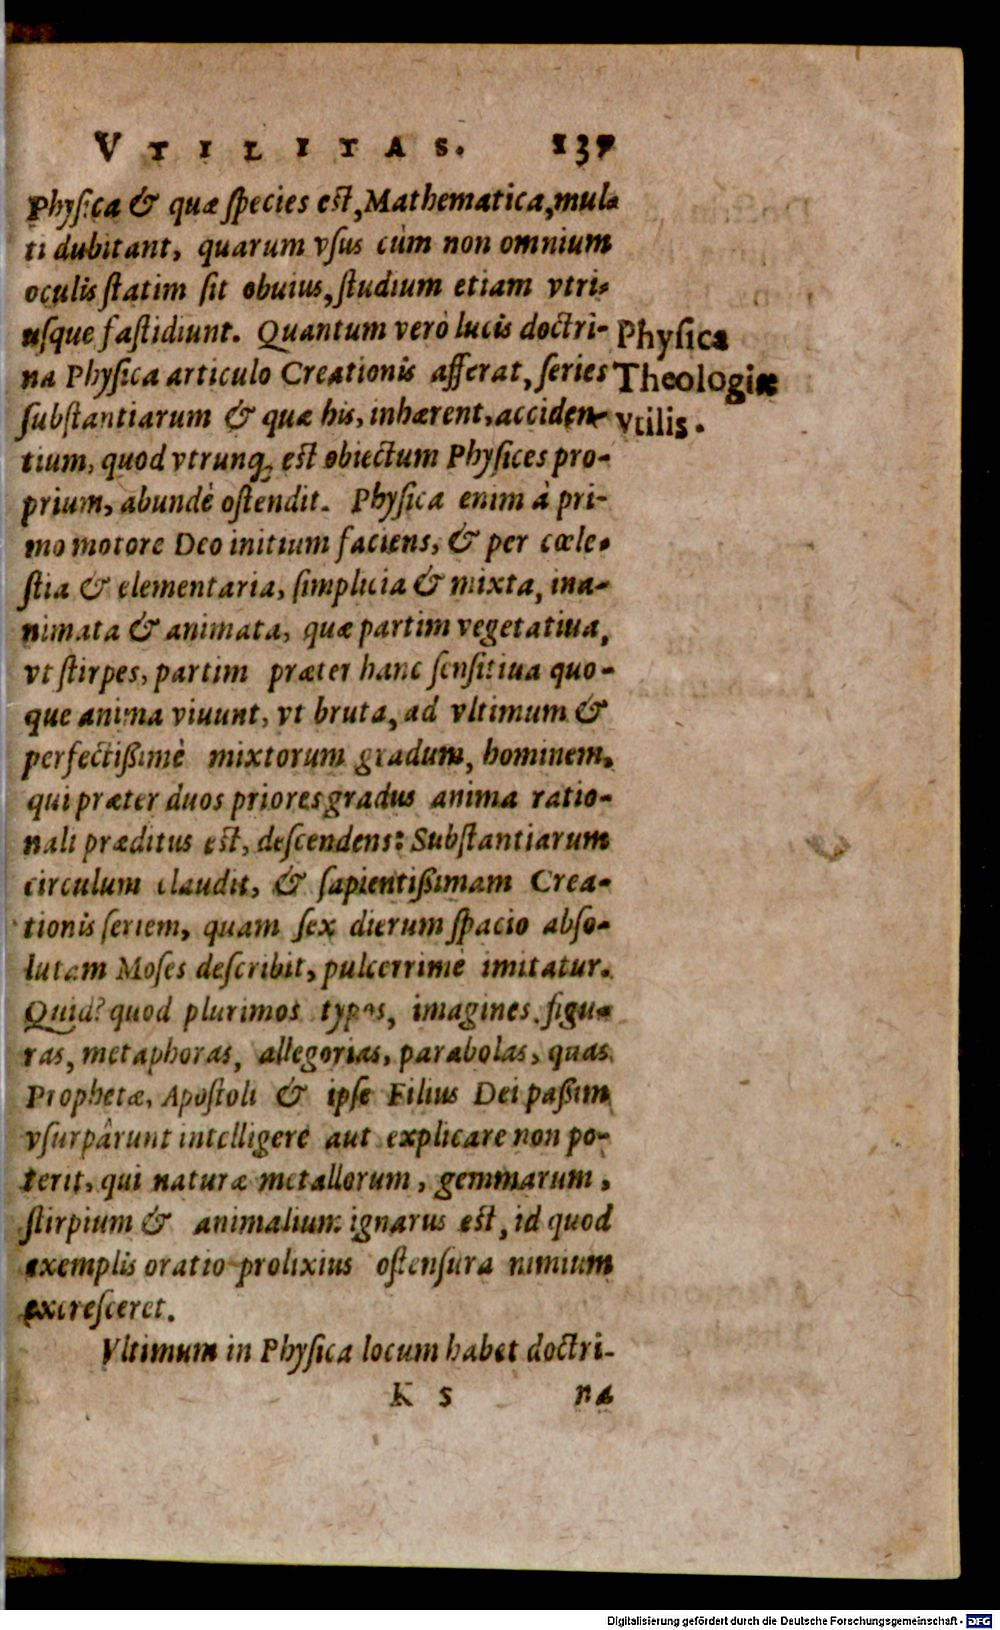 VTILITAS. 137
Physica & quæ species est, Mathematica, mul-
ti dubitant, quarum vsus cùm non omnium
oculis statim sit obuius, studium etiam vtri-
usque fastidiunt. Quantum verò lucis doctri-
na Physica articulo Creationis afferat, series
substantiarum & quæ his, inhærent, acciden-
tium, quod vtrunq; est obiectum Physices pro-
prium, abundè ostendit. Physica enim à pri-
mo motore Deo initium faciens, & per cœle-
stia & elementaria, simplicia & mixta, ina-
nimata & animata, quæ partim vegetatiua,
vt stirpes, partim præter hanc sensitiua quo-
que anima viuunt, vt bruta, ad vltimum &
perfectißimè mixtorum gradum, hominem,
qui præter duos priores gradus anima ratio-
nali præditus est, descendens: Substantiarum
circulum claudit, & sapientißimam Crea-
tionis seriem, quam sex dierum spacio abso-
lutam Moses describit, pulcerrimè imitatur.
Quid? quod plurimos typos, imagines, figu-
ras, metaphoras, allegorias, parabolas, quas
Prophetæ, Apostoli & ipse Filius Dei paßim
vsurpârunt intelligere aut explicare non po-
terit, qui naturæ metallorum, gemmarum,
stirpium & animalium ignarus est, id quod
exemplis oratio prolixius ostensura nimium
excresceret.
Vltimum in Physica locum habet doctri-
K 5 na
Physica
Theologiæ
vtilis.
Digitalisierung gefördert durch die Deutsche Forschungsgemeinschaft - DFG